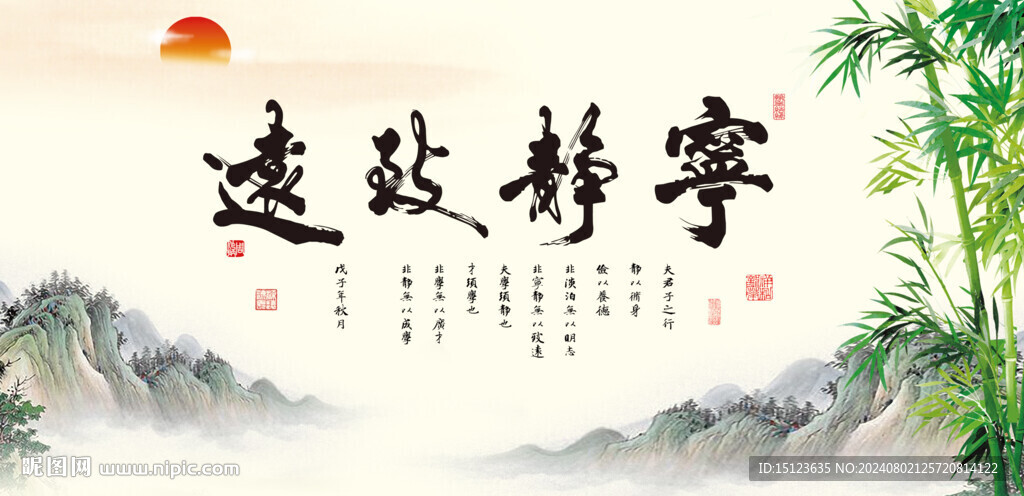 寧靜致遠
夫君子之行
靜以脩身
儉以養德
非淡泊無以明志
非寧靜無以致遠
夫學須靜也
才須學也
非學無以廣才
非靜無以成學
戊子年秋月
昵图网 www.nipic.com
ID:15123635 NO:20240802125720814122